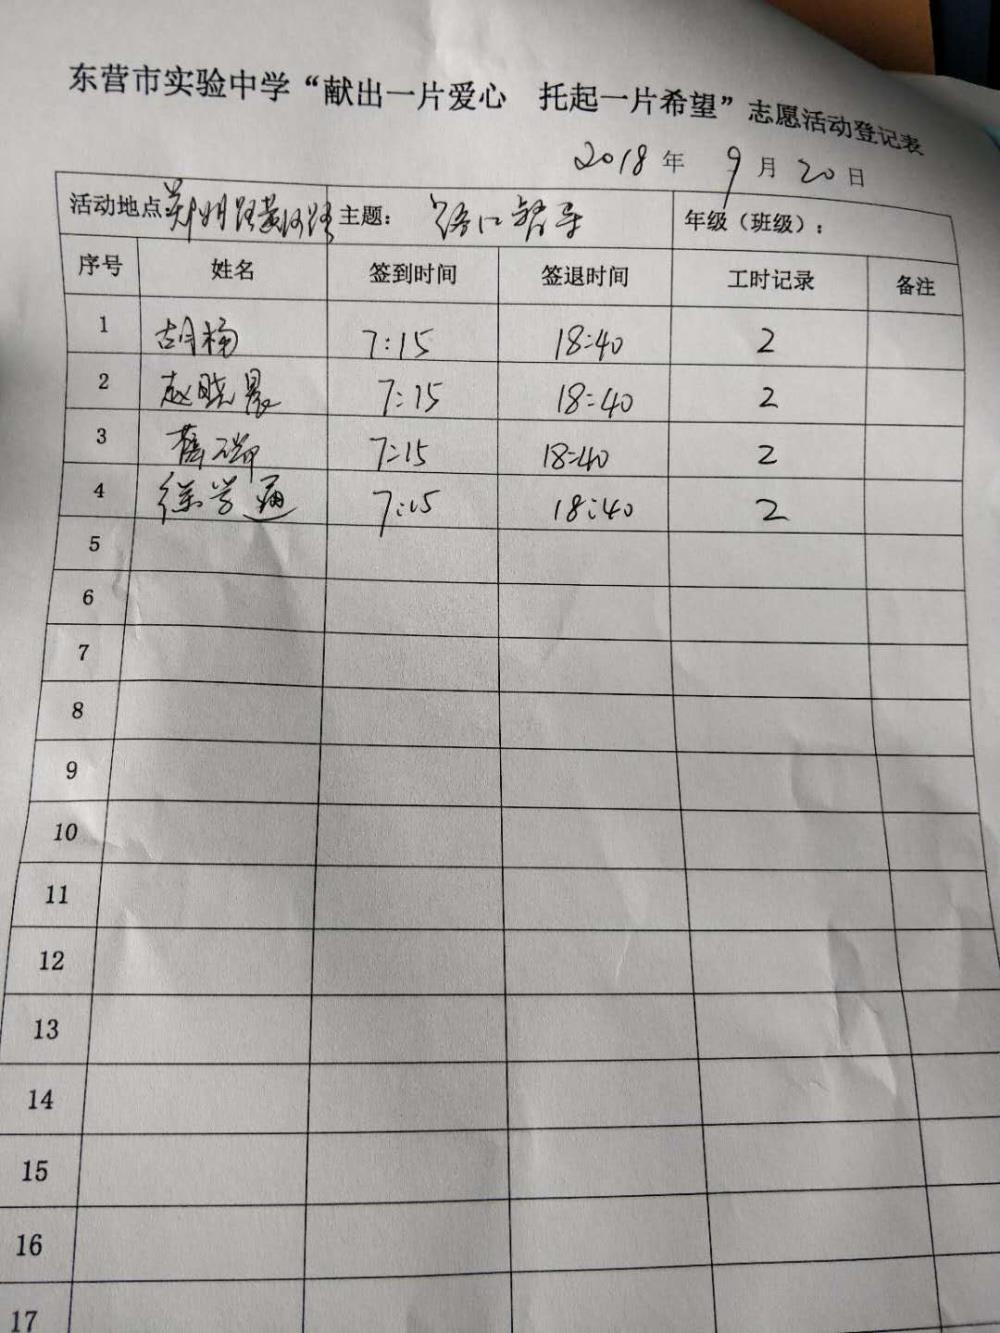 东营市实验中学“献出一片爱心 托起一片希望”志愿活动登记表
2018年 9月20日
活动地点 郑州路黄河路 主题: 路口督导 年级(班级):
序号 姓名 签到时间 签退时间 工时记录 备注
1 胡楠 7:15 18:40 2
2 赵晓晨 7:15 18:40 2
3 7:15 18:40 2
4 徐学通 7:15 18:40 2
5
6
7
8
9
10
11
12
13
14
15
16
17